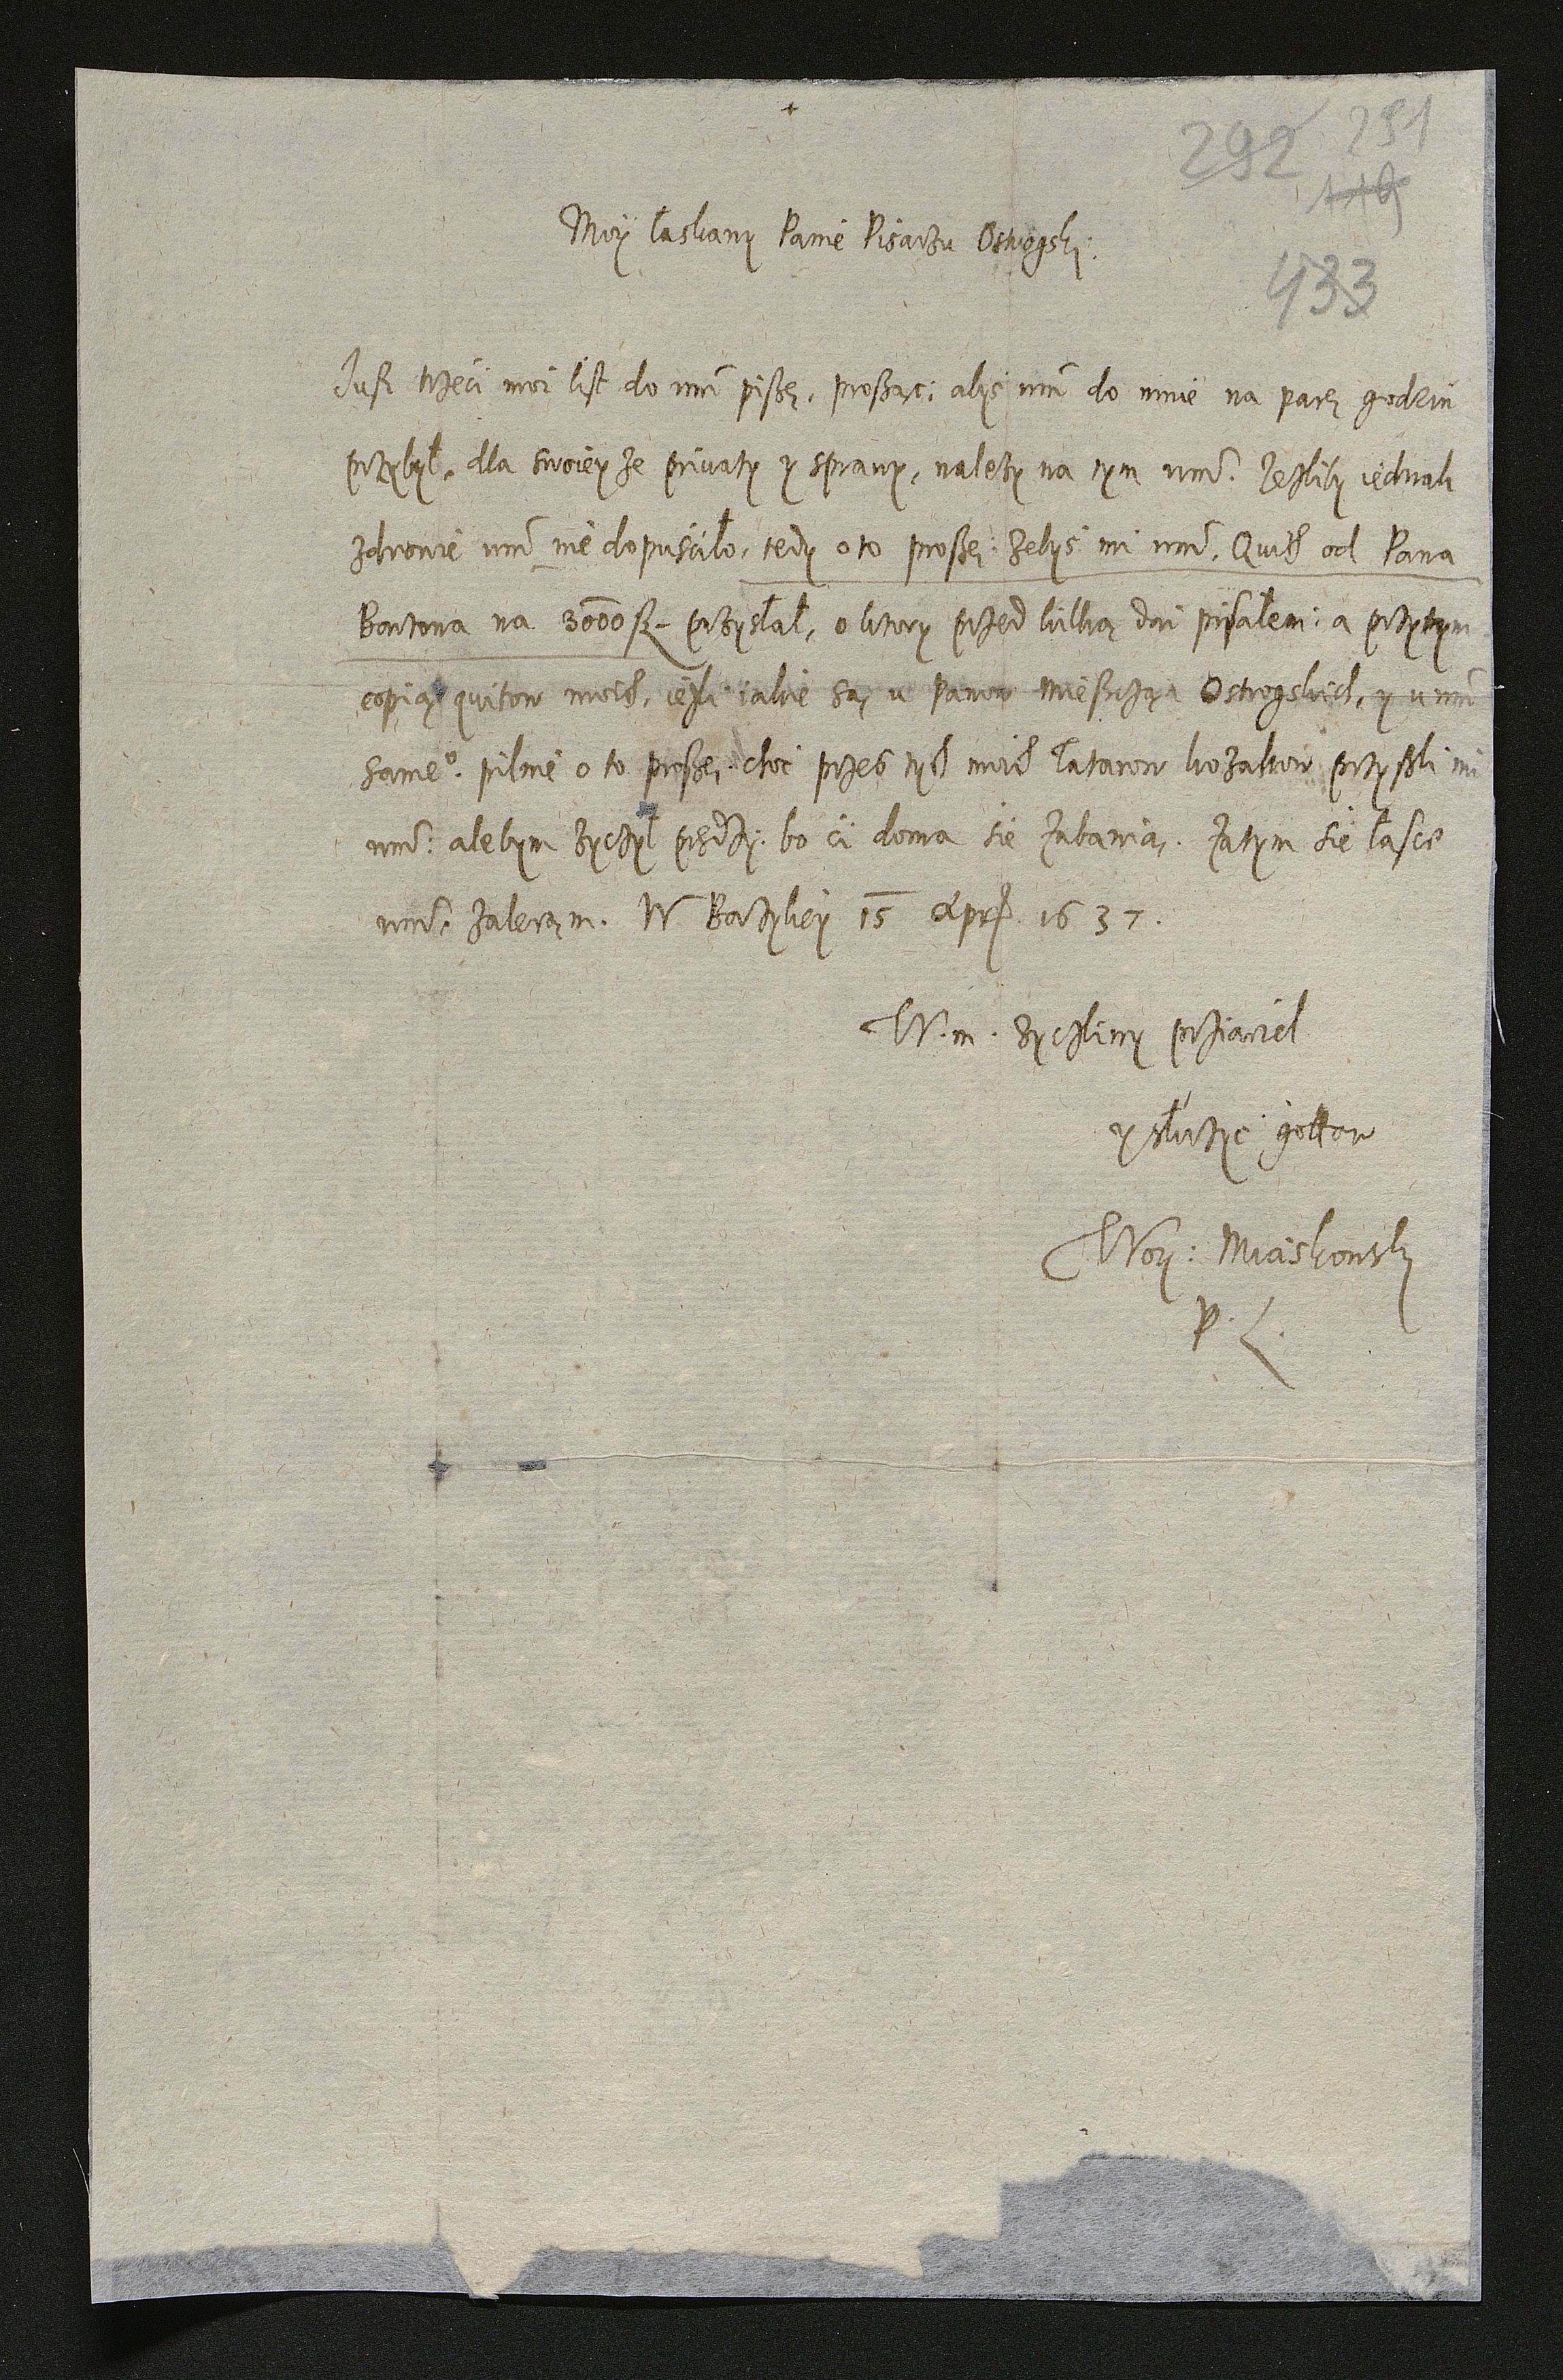 292 291
433
Moy łaskawy Panie Pisarżu Ostrogsky.
Jusz trżeci moi list do wmci piszę, prosząc: abys wm̃ do mnie na parę godzin
przybył, dla swoieyże privaty y sprawy, należy na tym wmci. Jeżliby iednak
zdrowie wmci nie dopusciło, tedy o to proszę: żebys mi wmć. Quith od Pana
Bartona na 3000 przysłał, o ktory przed kilką dni pisałem: a przytym
copią quitow moich, ieżli iakie są u Panow Mieszczan Ostrogskich, y u wmci
same⁰. pilnie o to proszę. choć przes tych moich Tatarow kozakow przyszli mi
wmć: alebym życzył prędży. bo ci doma się zabawią. Zatym się łasce
wmci zalecam. W Bazyliey 15 Apr. 1637.
W. m. życzliwy przjaciel
y służyc gottow
Woy: Miaskowsky
P. L.